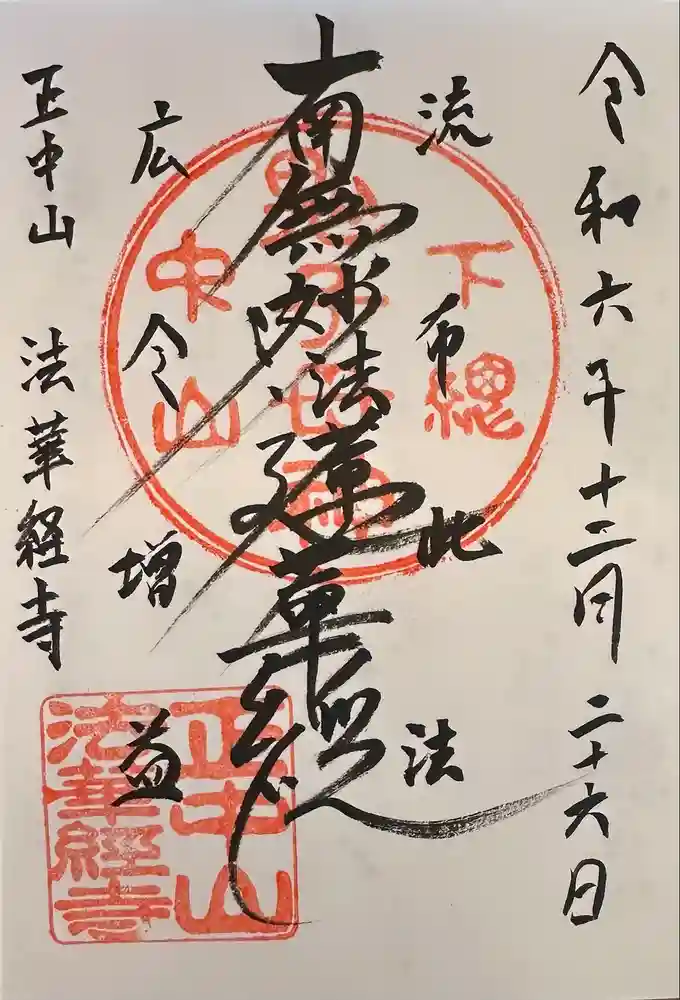 令和六年十二月二十六日
流布此法
南無妙法蓮華経
広令増益
正中山 法華経寺
下総
鬼子母神
中山
正中山
法華経寺